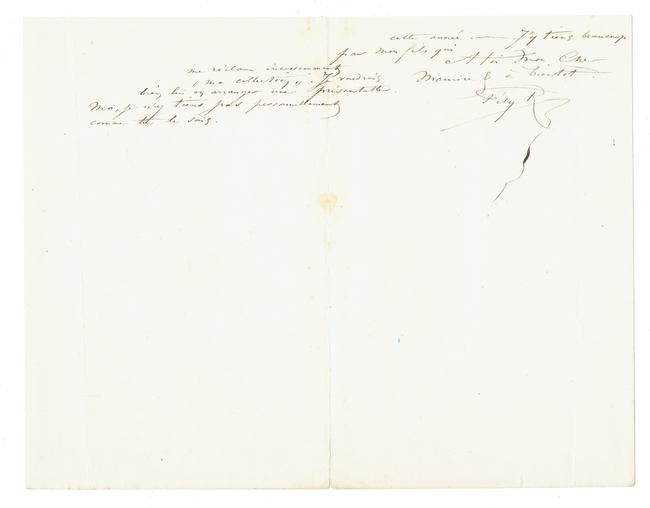 cette année. — J'y tiens beaucoup
par mon fils qui
me réclame incessamment
"ma collection". Je voudrais
bien lui en arranger une présentable.
Moi, je n'y tiens pas personnellement
comme tu le sais.
A toi Mon Cher
Maurice & à bientôt
Fély R